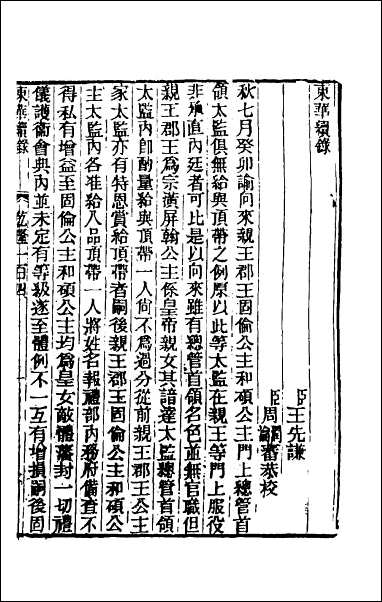 東華續錄
臣王先謙
臣周潤蕃恭校
秋七月癸卯諭向來親王郡王固倫公主和碩公主門上總管首
領太監俱無給與頂帶之例原以此等太監在親王等門上服役
非承直內廷者可比是以向來雖有總管首領名色並無官職但
親王郡王為宗潢屏翰公主係皇帝親女其諳達太監總管首領
太監內即酌量給與頂帶一人尙不為過分從前親王郡王公主
家太監亦有特恩賞給頂帶者嗣後親王郡王固倫公主和碩公
主太監內各准給八品頂帶一人將姓名報禮部內務府備查不
得私有增益至固倫公主和碩公主均為皇女敵體藩封一切禮
儀護衞會典內並未定有等級遂至體例不一互有增損嗣後固
東華續錄 乾隆一百四